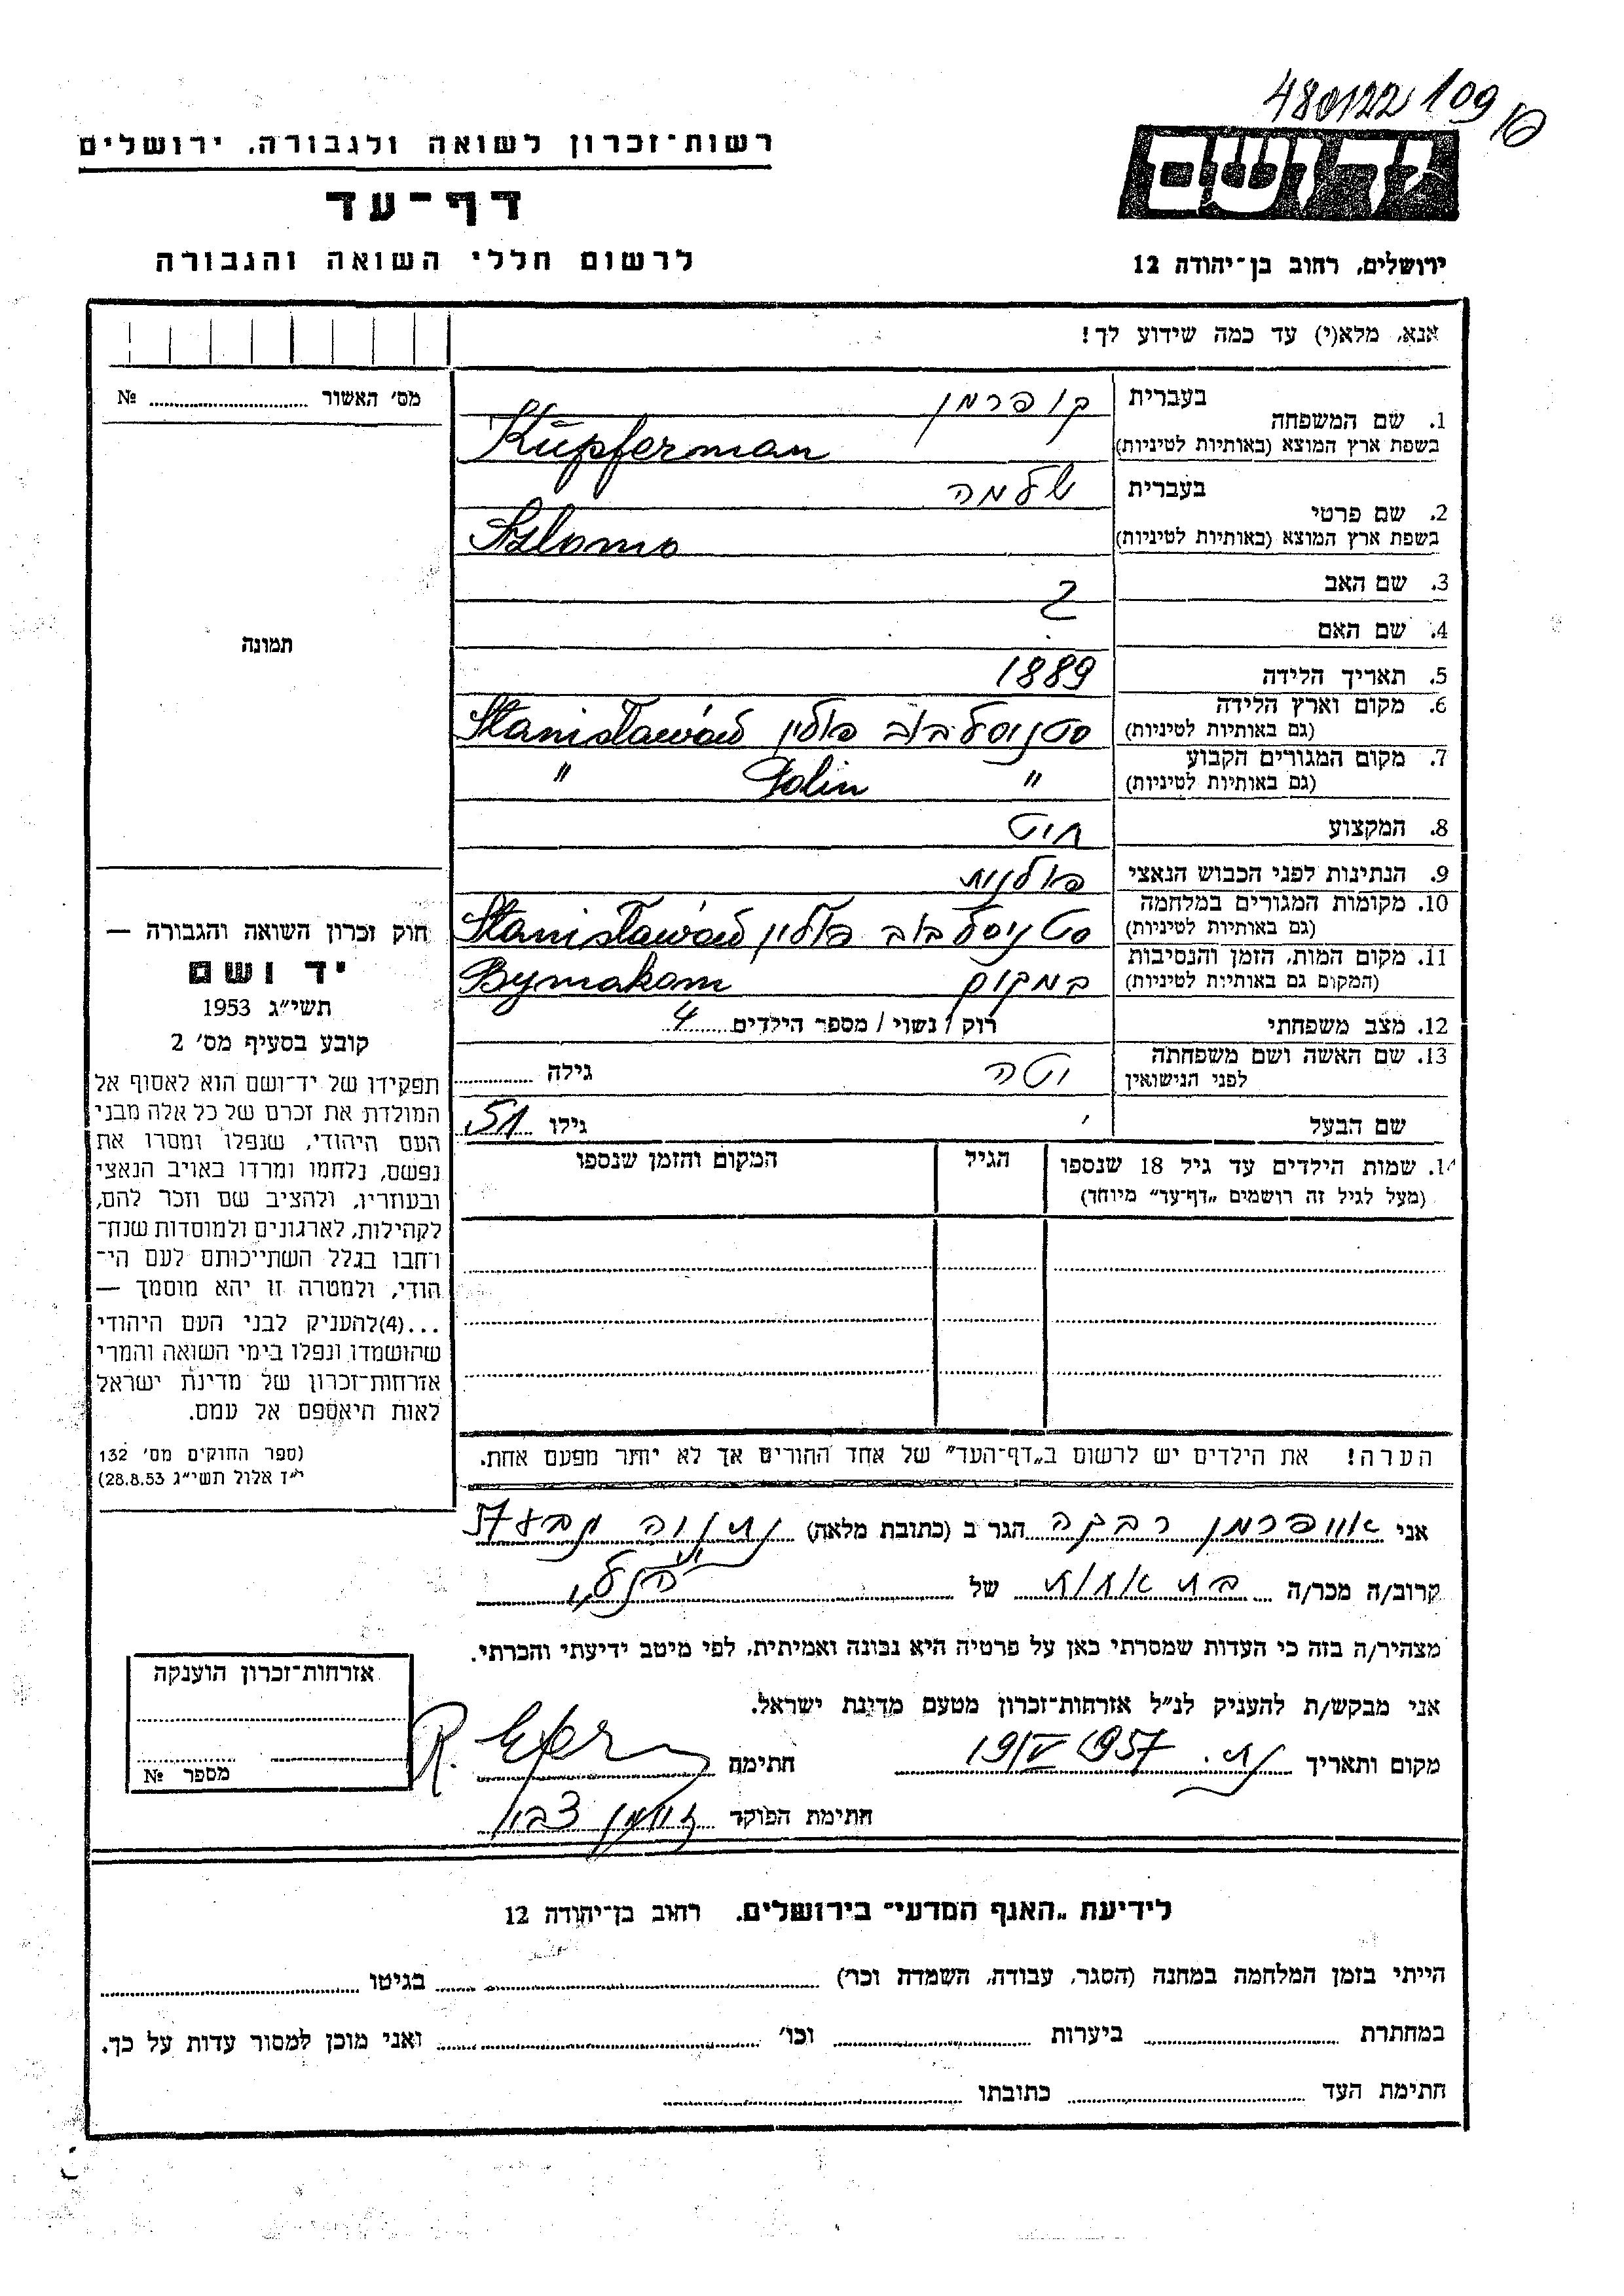 480122 109
רשות־זכרון לשואה ולגבורה, ירושלים
דף־עד
לרשום חללי השואה והגבורה
ידושם
ירושלים, רחוב בן־יהודה 12
אנא, מלא(י) עד כמה שידוע לך!
מס' האשור № ........
1. שם המשפחה בעברית קופרמן
בשפת ארץ המוצא (באותיות לטיניות) Kupferman
2. שם פרטי בעברית שלמה
בשפת ארץ המוצא (באותיות לטיניות) Szlomo
3. שם האב ?
4. שם האם
5. תאריך הלידה 1889
6. מקום וארץ הלידה (גם באותיות לטיניות) סטניסלבוב פולין Stanisławów
7. מקום המגורים הקבוע (גם באותיות לטיניות) " Polin "
8. המקצוע חיט
9. הנתינות לפני הכבוש הנאצי פולנית
10. מקומות המגורים במלחמה (גם באותיות לטיניות) סטניסלבוב פולין Stanisławów
11. מקום המות, הזמן והנסיבות (המקום גם באותיות לטיניות) במקום Bymakom
12. מצב משפחתי רוק / נשוי / מספר הילדים 4
13. שם האשה ושם משפחתה לפני הנישואין יטה גילה ........
שם הבעל גילו 51
14. שמות הילדים עד גיל 18 שנספו
(מעל לגיל זה רושמים „דף־עד" מיוחד)
הגיל
המקום והזמן שנספו
הערה! את הילדים יש לרשום ב„דף־העד" של אחד ההורים אך לא יותר מפעם אחת.
תמונה
חוק זכרון השואה והגבורה —
יד ושם
תשי"ג 1953
קובע בסעיף מס' 2
תפקידו של יד־ושם הוא לאסוף אל
המולדת את זכרם של כל אלה מבני
העם היהודי, שנפלו ומסרו את
נפשם, נלחמו ומרדו באויב הנאצי
ובעוזריו, ולהציב שם וזכר להם,
לקהילות, לארגונים ולמוסדות שנח־
רחבו בגלל השתייכותם לעם הי־
הודי, ולמטרה זו יהא מוסמך —
...(4)להעניק לבני העם היהודי
שהושמדו ונפלו בימי השואה והמרי
אזרחות־זכרון של מדינת ישראל
לאות היאספם אל עמם.
(ספר החוקים מס' 132
י"ז אלול תשי"ג 28.8.53)
אני רבקה הגר ב (כתובת מלאה) נתניה
קרוב/ה מכר/ה בת אחות של הנ"ל
מצהיר/ה בזה כי העדות שמסרתי כאן על פרטיה היא נכונה ואמיתית, לפי מיטב ידיעתי והכרתי.
אני מבקש/ת להעניק לנ"ל אזרחות־זכרון מטעם מדינת ישראל.
מקום ותאריך נת. 19/V 1957 חתימה R.
חתימת הפוקד
אזרחות־זכרון הוענקה
מספר №
לידיעת „האגף המדעי" בירושלים, רחוב בן־יהודה 12
הייתי בזמן המלחמה במחנה (הסגר, עבודה, השמדה וכו') ........ בגיטו ........
במחתרת ........ ביערות ........ וכו' ........ ואני מוכן למסור עדות על כך.
חתימת העד ........ כתובתו ........